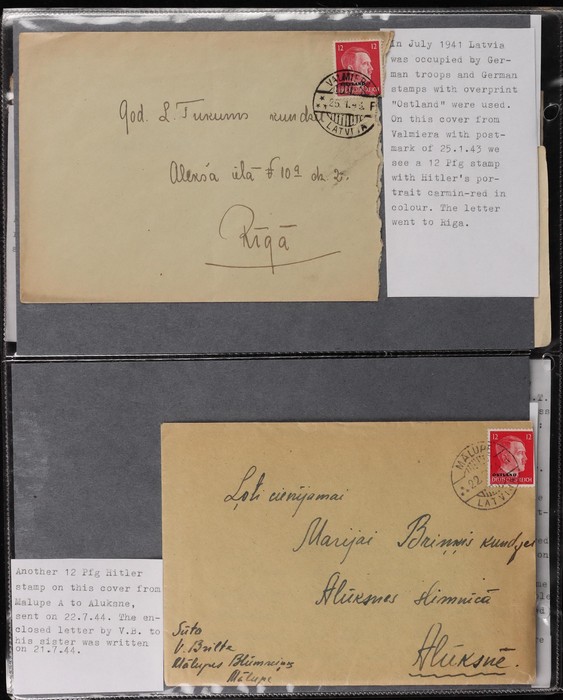 12 12
VALMIERA
25.1.43. F
LATVIJA
God. L. Tukums kundz.
Aleksa ielā № 10a dz. 2.
Rīgā
In July 1941 Latvia
was occupied by Ger-
man troops and German
stamps with overprint
"Ostland" were used.
On this cover from
Valmiera with post-
mark of 25.1.43 we
see a 12 Pfg stamp
with Hitler's por-
trait carmin-red in
colour. The letter
went to Riga.
12 12
OSTLAND
MALUPE
22.
LATVIJA
Ļoti cienījamai
Marijai Briņņis kundzei
Alūksnes slimnīcā
Alūksnē.
Sūta
V. Britte
Mālupes Blūmniņos
Mālupe
Another 12 Pfg Hitler
stamp on this cover from
Malupe A to Aluksne,
sent on 22.7.44. The en-
closed letter by V.B. to
his sister was written
on 21.7.44.